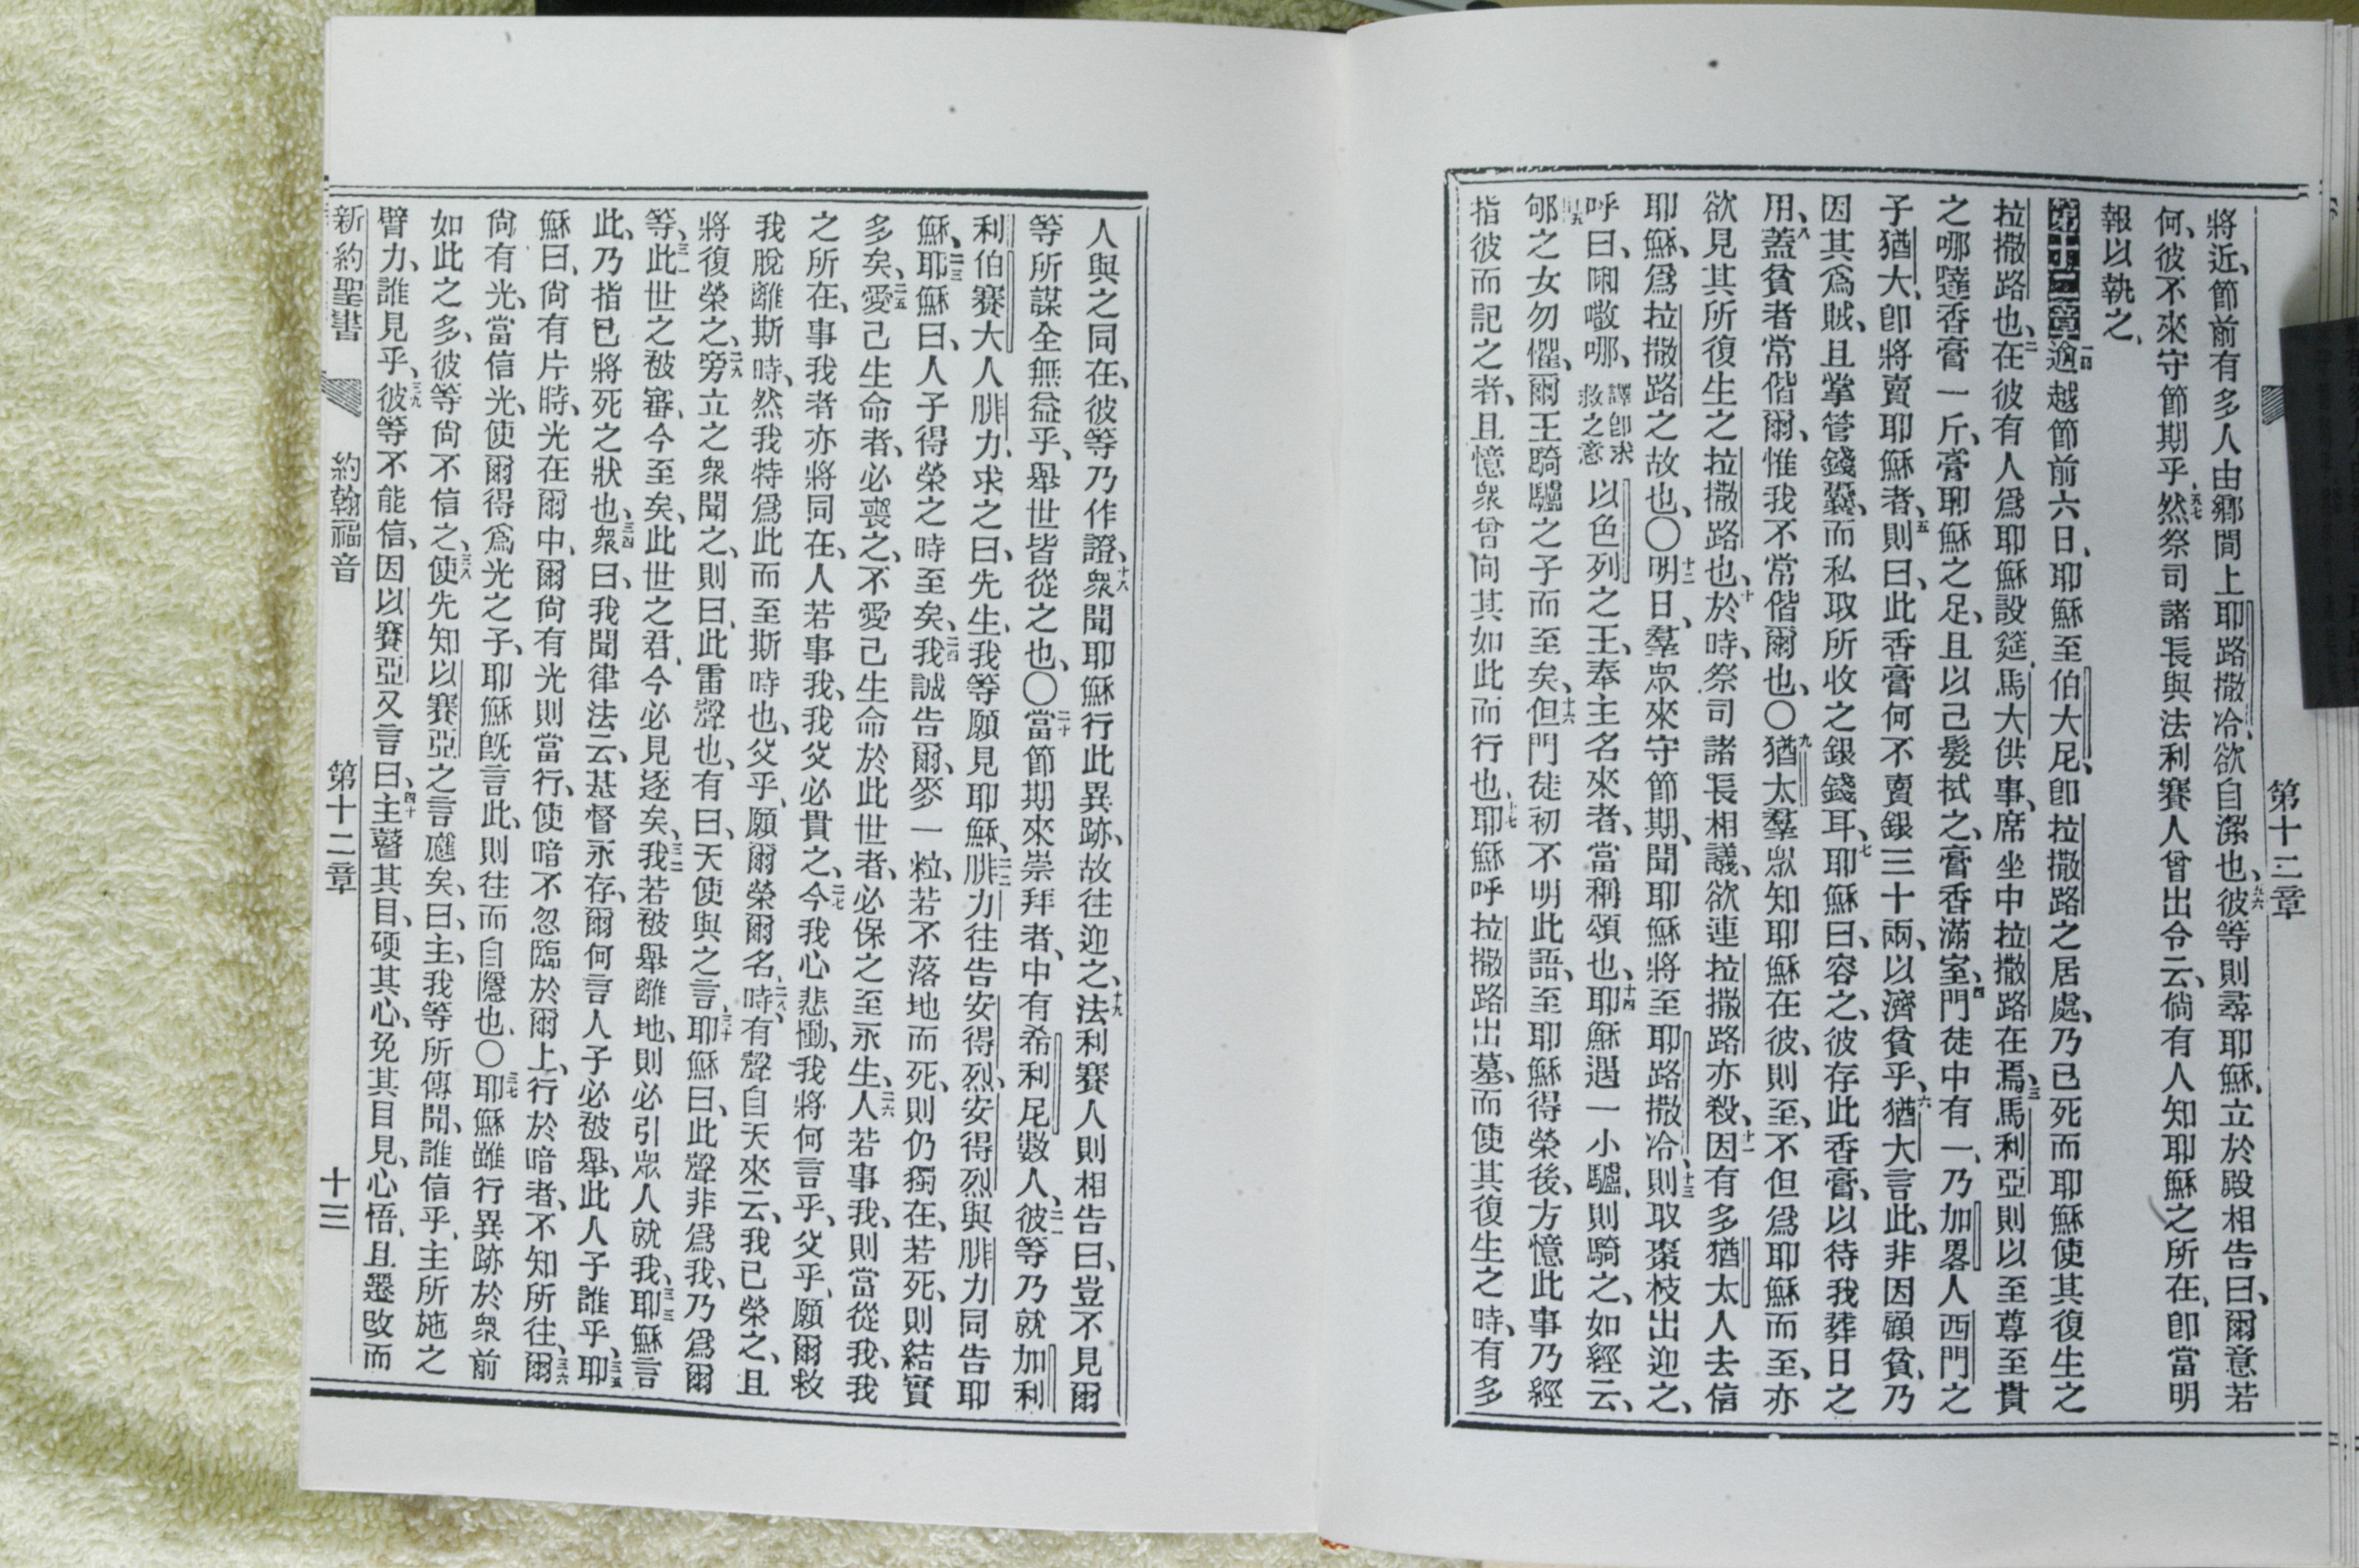 第十二章
將近、節前有多人由鄉間上耶路撒冷、欲自潔也、五六彼等則尋耶穌、立於殿相告曰、爾意若
何、彼不來守節期乎、五七然祭司諸長與法利賽人曾出令云、倘有人知耶穌之所在、卽當明
報以執之、
第十二章一四逾越節前六日、耶穌至伯大尼、卽拉撒路之居處、乃已死而耶穌使其復生之
拉撒路也、二在彼有人爲耶穌設筵、馬大供事、席坐中拉撒路在焉、三馬利亞則以至尊至貴
之哪噠香膏一斤、膏耶穌之足、且以己髮拭之、膏香滿室、四門徒中有一、乃加畧人西門之
子猶大、卽將賣耶穌者、五則曰、此香膏何不賣銀三十兩、以濟貧乎、六猶大言此、非因顧貧、乃
因其爲賊、且掌管錢囊、而私取所收之銀錢耳、七耶穌曰、容之、彼存此香膏、以待我葬日之
用、八蓋貧者常偕爾、惟我不常偕爾也、〇九猶太羣眾知耶穌在彼、則至、不但爲耶穌而至、亦
欲見其所復生之拉撒路也、十於時、祭司諸長相議、欲連拉撒路亦殺、十一因有多猶太人去信
耶穌、爲拉撒路之故也、〇十二明日、羣眾來守節期、聞耶穌將至耶路撒冷、十三則取棗枝出迎之、
呼曰、㗂嗷哪、譯卽求救之意以色列之王、奉主名來者、當稱頌也、十四耶穌遇一小驢、則騎之、如經云、
十五郇之女勿懼、爾王騎驢之子而至矣、十六但門徒初不明此語、至耶穌得榮後、方憶此事乃經
指彼而記之者、且憶衆曾向其如此而行也、十七耶穌呼拉撒路出墓、而使其復生之時、有多
人與之同在、彼等乃作證、十八衆聞耶穌行此異跡、故往迎之、十九法利賽人則相告曰、豈不見爾
等所謀全無益乎、舉世皆從之也、〇二十當節期來崇拜者、中有希利尼數人、二一彼等乃就加利
利伯賽大人腓力、求之曰、先生、我等願見耶穌、二二腓力往告安得烈、安得烈與腓力同告耶
穌、二三耶穌曰、人子得榮之時至矣、二四我誠告爾、麥一粒、若不落地而死、則仍獨在、若死、則結實
多矣、二五愛己生命者、必喪之、不愛己生命於此世者、必保之至永生、二六人若事我、則當從我、我
之所在、事我者亦將同在、人若事我、我父必貴之、二七今我心悲慟、我將何言乎、父乎、願爾救
我脫離斯時、然我特爲此而至斯時也、父乎、願爾榮爾名、二八時、有聲自天來云、我已榮之、且
將復榮之、二九旁立之衆聞之、則曰、此雷聲也、有曰、天使與之言、三十耶穌曰、此聲非爲我、乃爲爾
等、三一此世之被審、今至矣、此世之君、今必見逐矣、三二我若被舉離地、則必引眾人就我、三三耶穌言
此、乃指己將死之狀也、三四衆曰、我聞律法云、基督永存、爾何言人子必被舉、此人子誰乎、三五耶
穌曰、尙有片時、光在爾中、爾尙有光則當行、使暗不忽臨於爾上、行於暗者、不知所往、三六爾
尙有光、當信光、使爾得爲光之子、耶穌旣言此、則往而自隱也、〇三七耶穌雖行異跡於衆前
如此之多、彼等尙不信之、三八使先知以賽亞之言應矣、曰、主、我等所傳聞、誰信乎、主所施之
臂力、誰見乎、三九彼等不能信、因以賽亞又言曰、四十主瞽其目、硬其心、免其目見、心悟、且遷改而
新約聖書 約翰福音 第十二章 十三